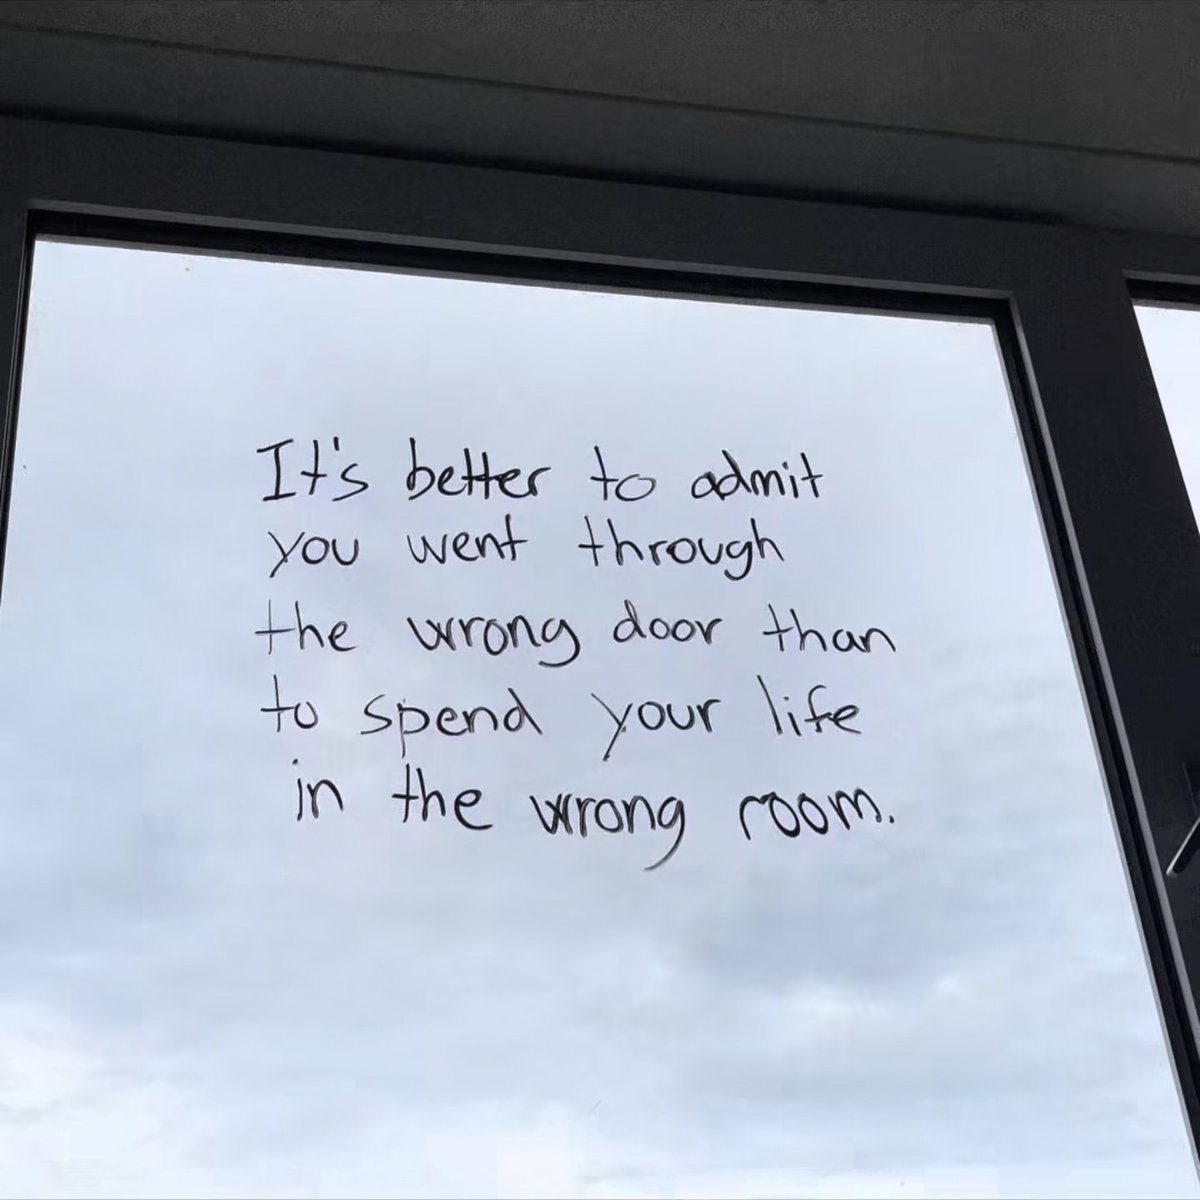 It's better to admit
you went through
the wrong door than
to spend your life
in the wrong room.